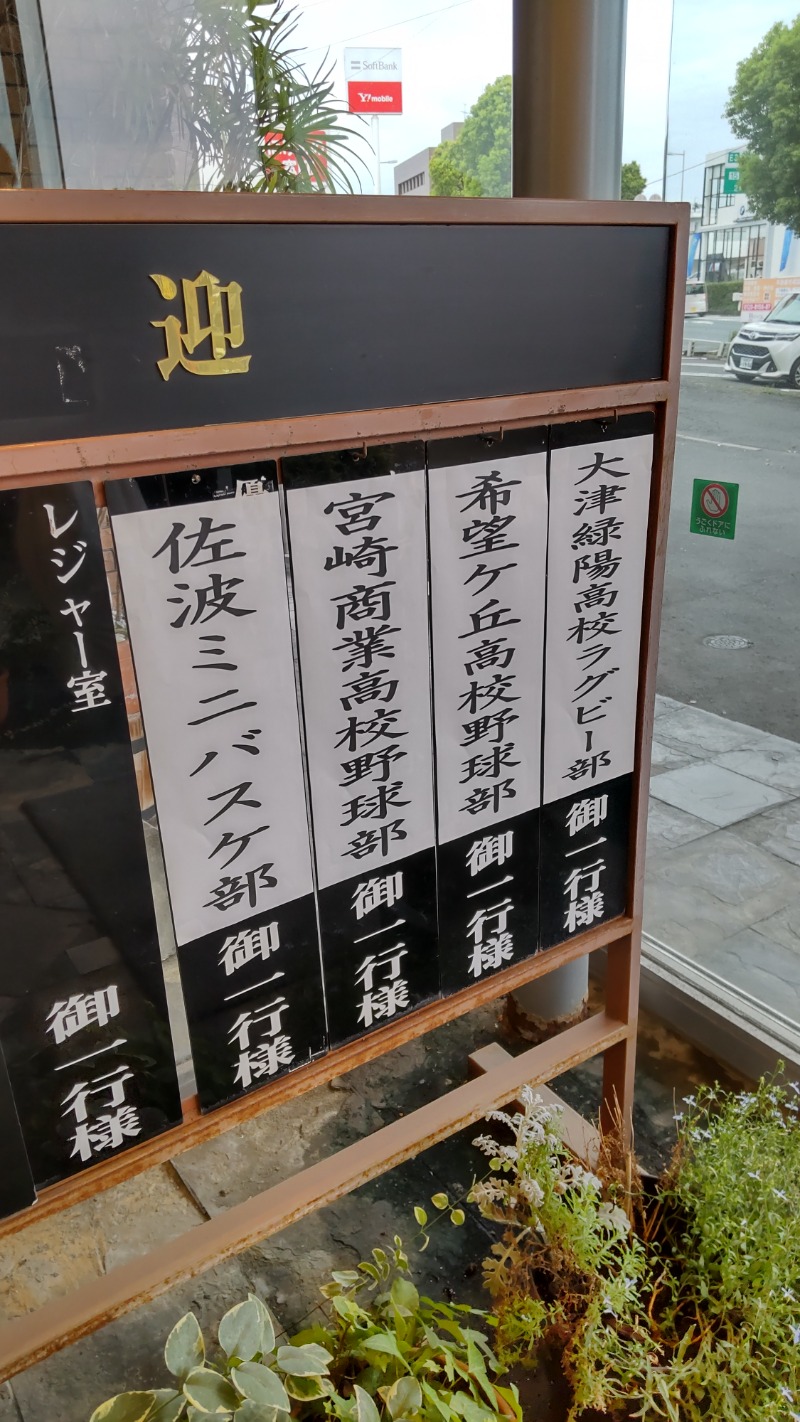 SoftBank
Y!mobile
迎
大津緑陽高校ラグビー部
御一行様
希望ケ丘高校野球部
御一行様
宮崎商業高校野球部
御一行様
佐波ミニバスケ部
御一行様
レジャー室
御一行様
うごくドアに
ふれない